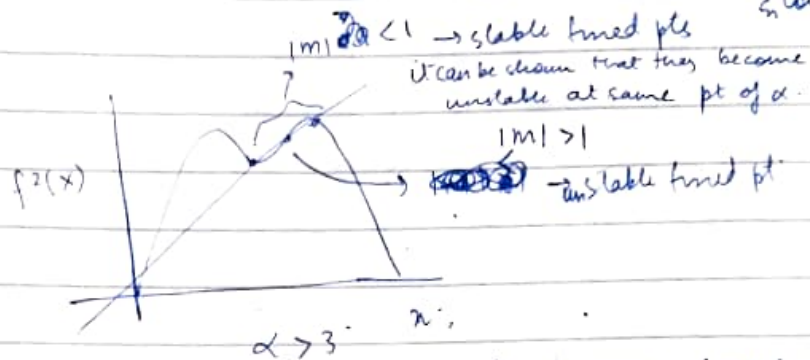 |m| < 1 → stable fixed pts
it can be shown that they become
unstable at same pt of α.
|m| > 1
→ unstable fixed pt
f²(x)
x
α > 3